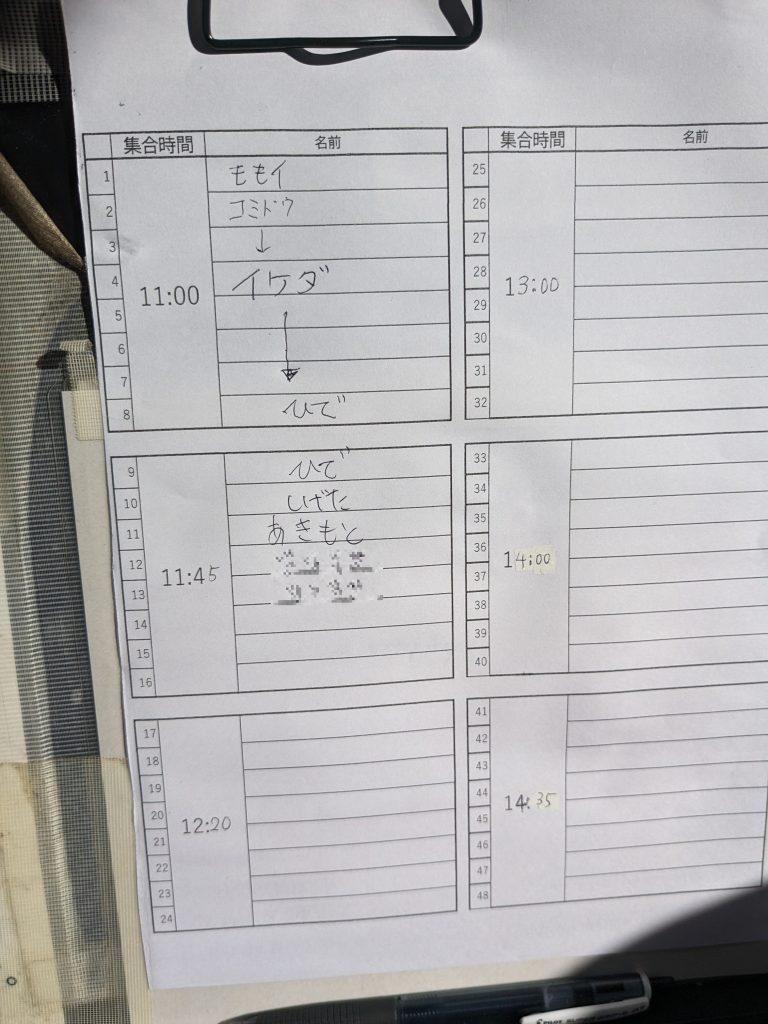 集合時間 名前
1 ももイ
2 コミドウ
3 ↓
4 イケダ
11:00
5
6
7
8 ひで
9 ひで
10 しげた
11 あきもと
12
11:45
13
14
15
16
17
18
19
20
12:20
21
22
23
24
集合時間 名前
25
26
27
28
13:00
29
30
31
32
33
34
35
36
14:00
37
38
39
40
41
42
43
44
14:35
45
46
47
48